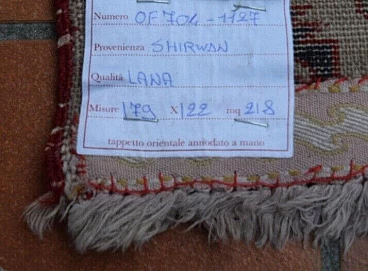 Numero OF704-1127
Provenienza SHIRWAN
Qualità LANA
Misure 179 X 122 mq 218
tappetto orientale annodato a mano